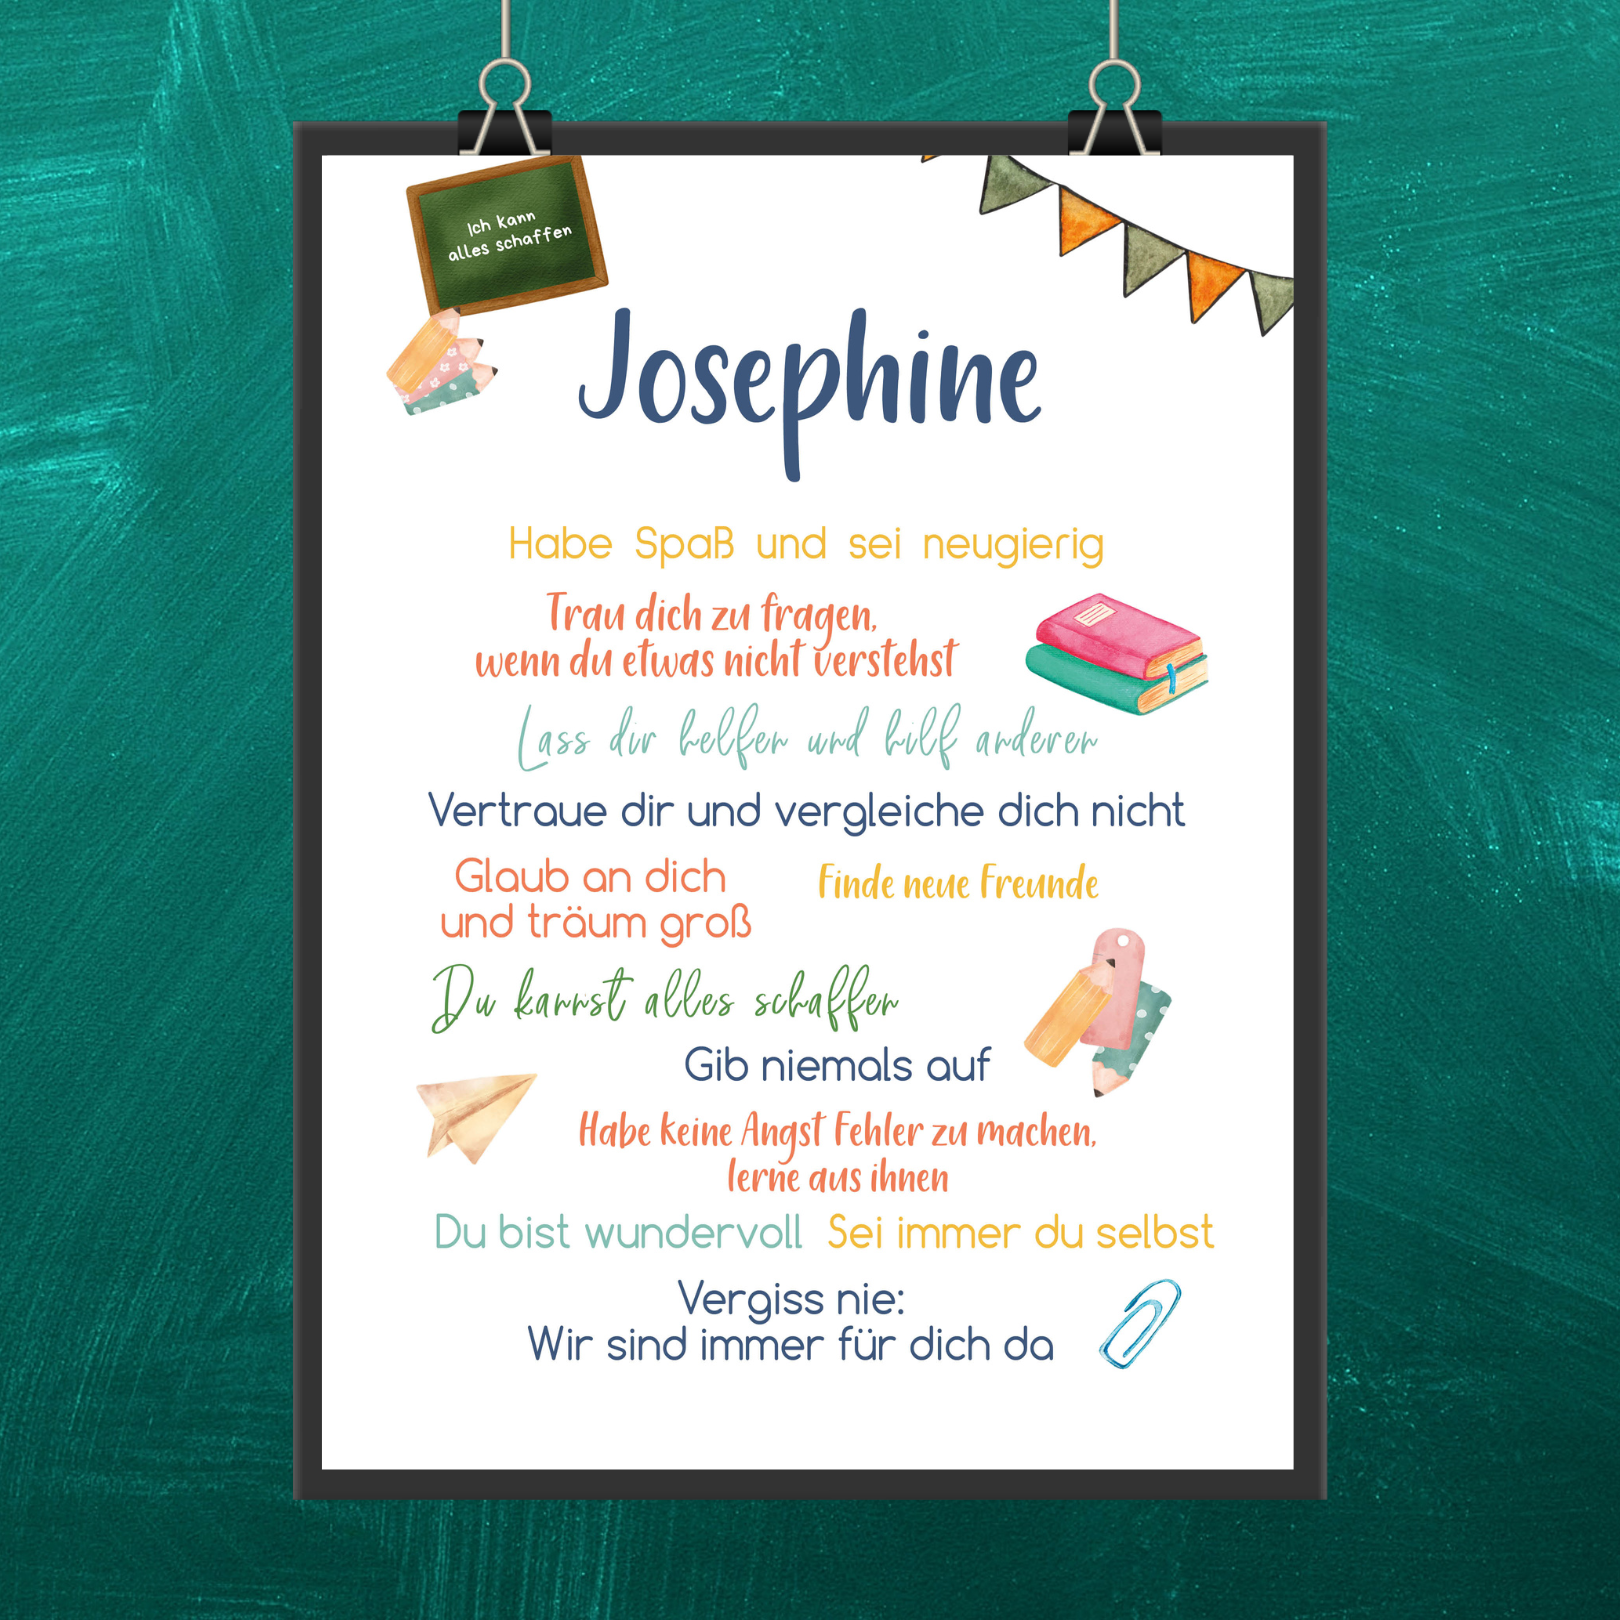 Ich kann
alles schaffen
Josephine
Habe Spaß und sei neugierig
Trau dich zu fragen,
wenn du etwas nicht verstehst
Lass dir helfen und hilf anderen
Vertraue dir und vergleiche dich nicht
Glaub an dich
und träum groß
Finde neue Freunde
Du kannst alles schaffen
Gib niemals auf
Habe keine Angst Fehler zu machen,
lerne aus ihnen
Du bist wundervoll
Sei immer du selbst
Vergiss nie:
Wir sind immer für dich da